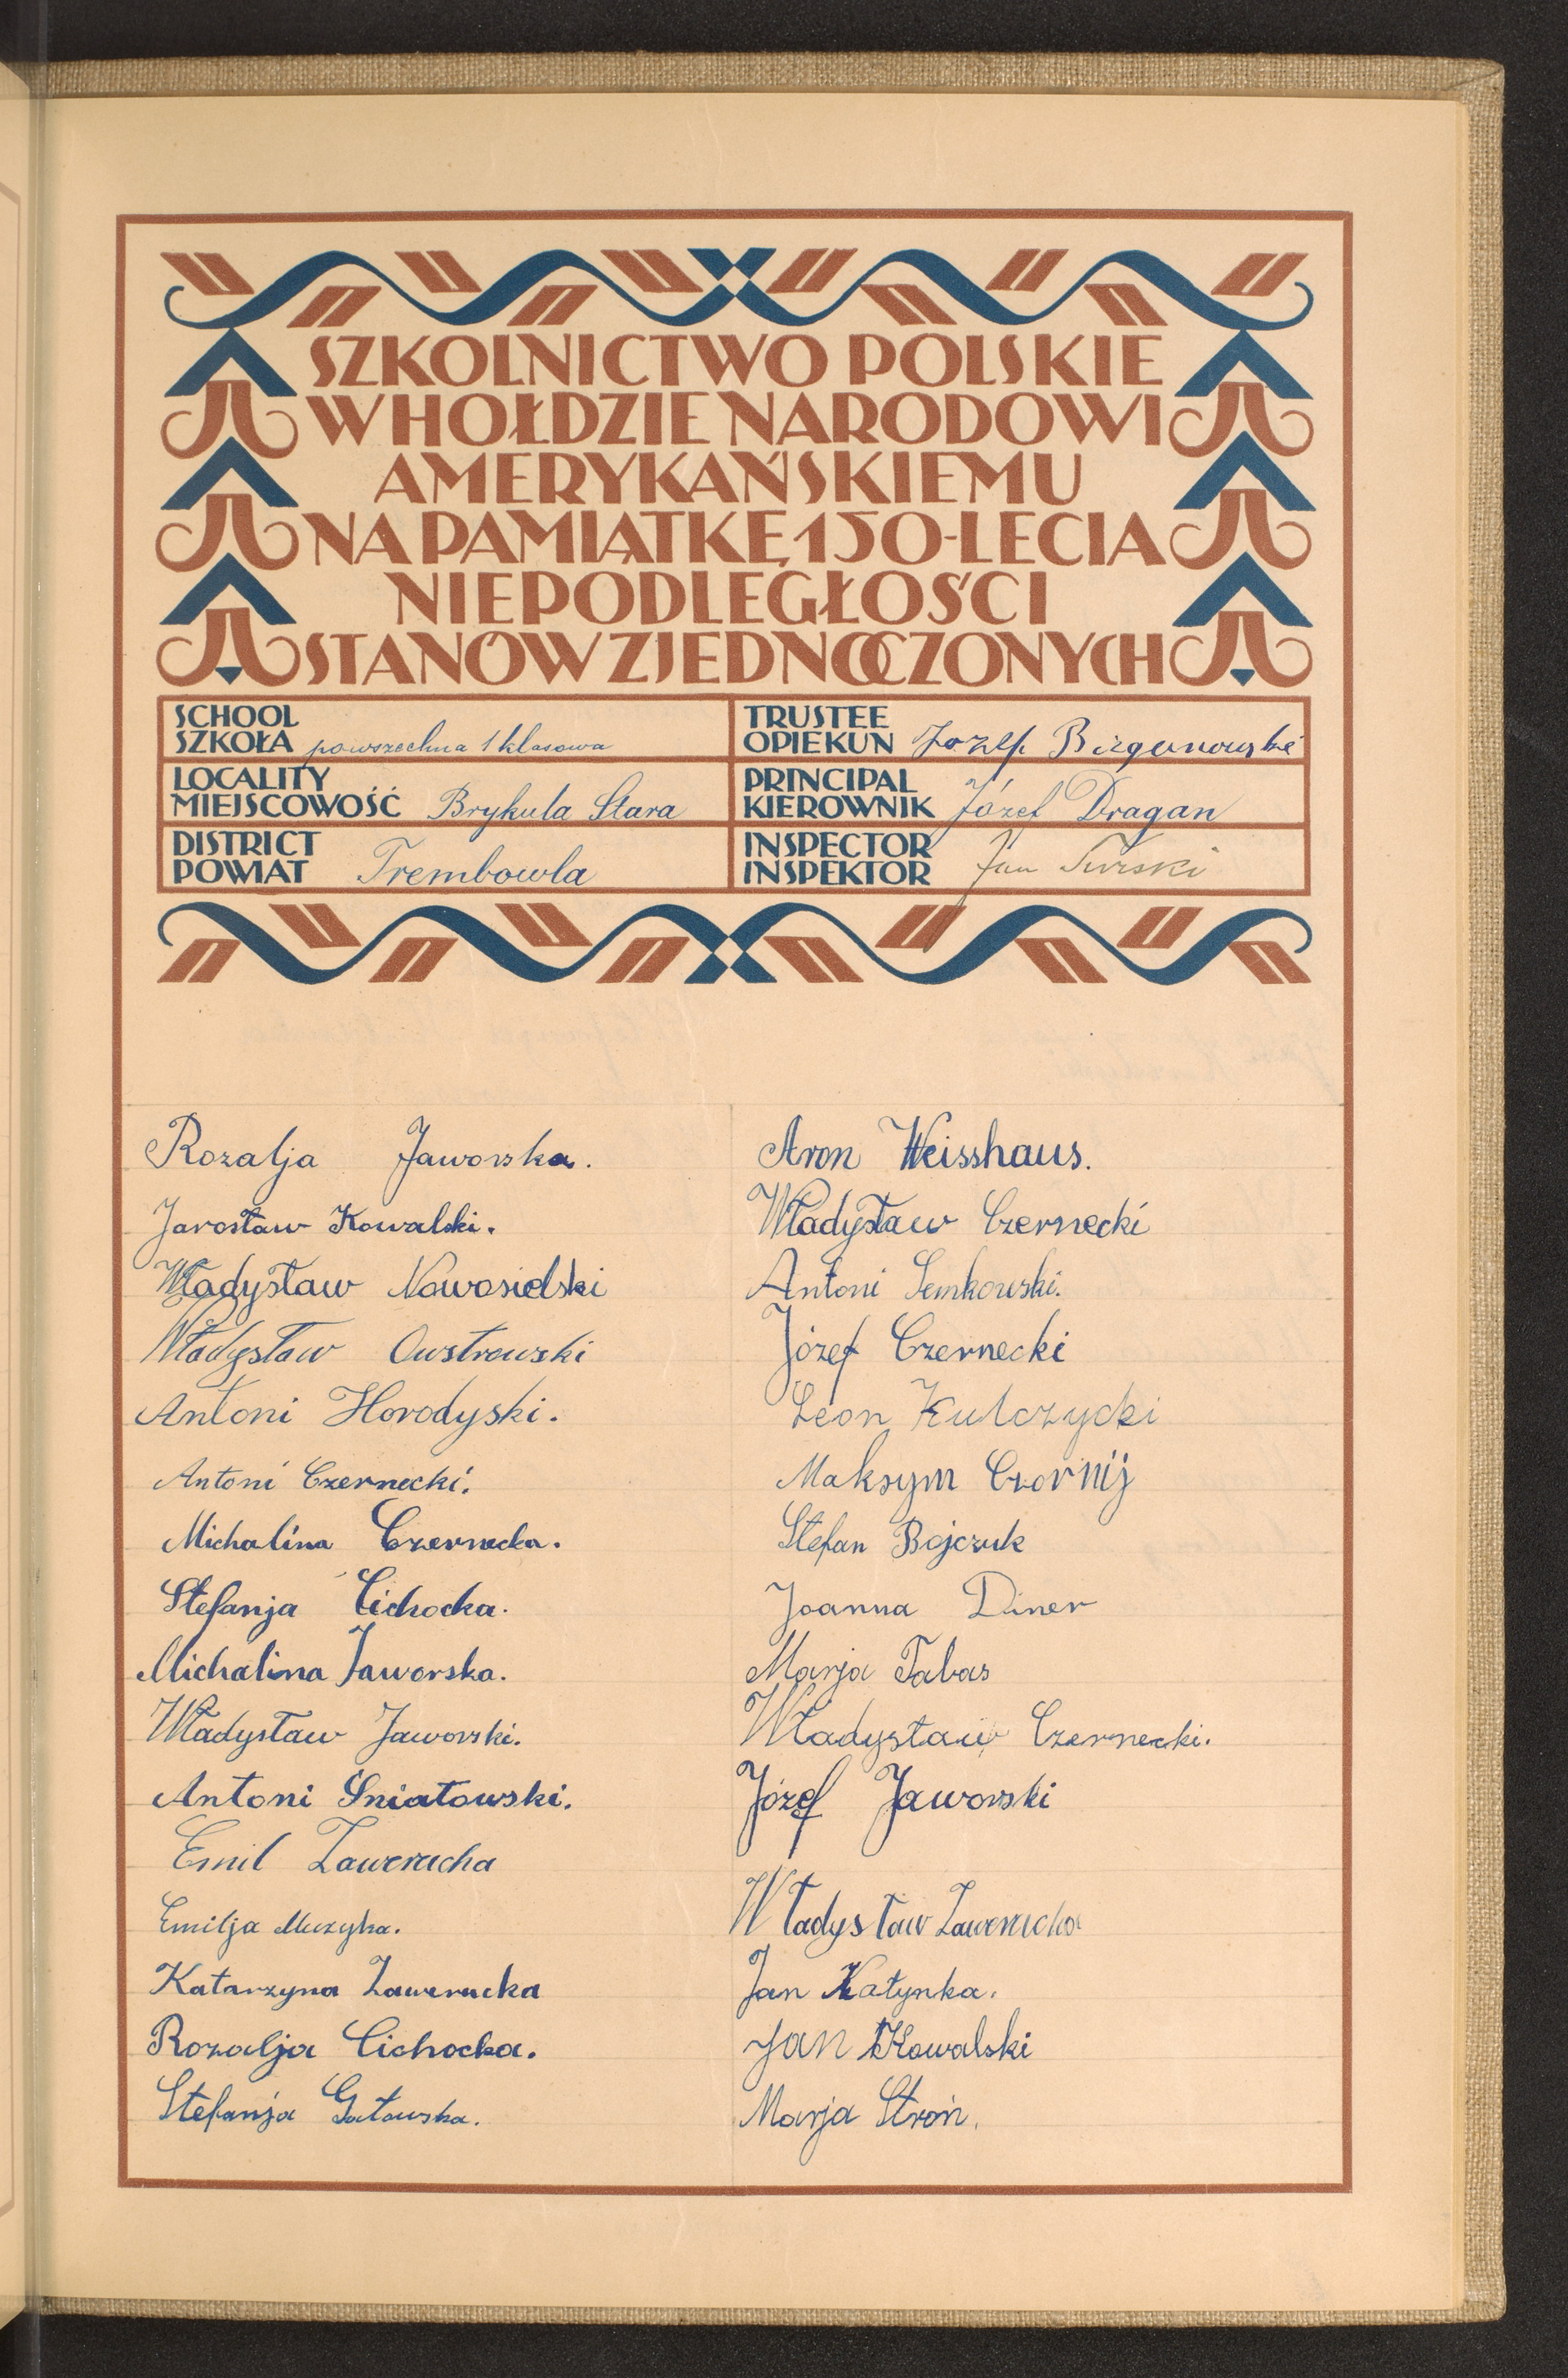 SZKOLNICTWO POLSKIE
W HOŁDZIE NARODOWI
AMERYKAŃSKIEMU
NA PAMIĄTKĘ 150-LECIA
NIEPODLEGŁOŚCI
STANÓW ZJEDNOCZONYCH
SCHOOL
SZKOŁA powszechna 1 klasowa
LOCALITY
MIEJSCOWOŚĆ Brykula Stara
DISTRICT
POWIAT Trembowla
TRUSTEE
OPIEKUN Józef
PRINCIPAL
KIEROWNIK Józef Dragan
INSPECTOR
INSPEKTOR Jan
Rozalja Jaworska.
Jarosław Kowalski.
Władysław Nowosielski
Władysław Owstrowski
Antoni Horodyski.
Antoni Czernecki.
Michalina Czernecka.
Stefanja Cichocka.
Michalina Jaworska.
Władysław Jaworski.
Antoni Śniatowski.
Emil Zaweracha
Emilja Muzyka.
Katarzyna Zaweracka
Rozalja Cichocka.
Stefanja Gałowska.
Aron Weisshaus.
Władysław Czernecki
Antoni Semkowski.
Józef Czernecki
Leon Kulczycki
Maksym Czornij
Stefan Bojczuk
Joanna Diner
Marja Tabas
Władysław Czernecki.
Józef Jaworski
Władysław Zaweracha
Jan Kałynka.
Jan Kowalski
Marja Stroń.